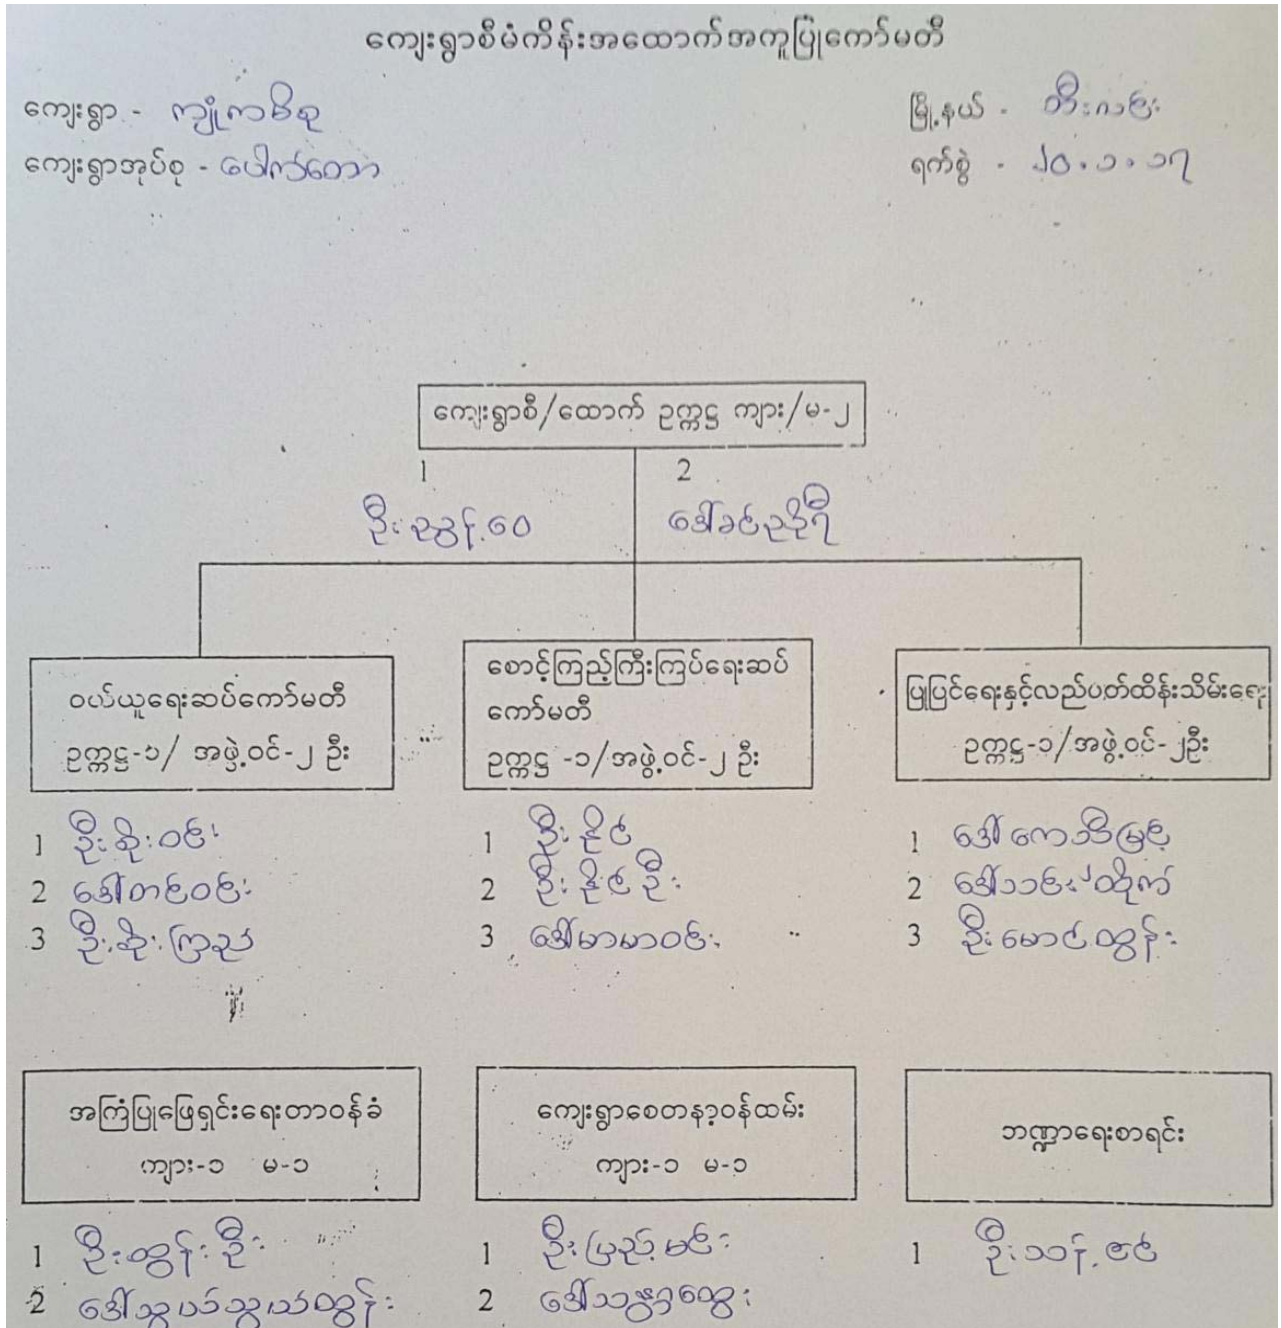 ကျေးရွာစီမံကိန်းအထောက်အကူပြုကော်မတီ
ကျေးရွာ - ကျုံကမိစု
မြို့နယ် - ဘီးလင်း
ကျေးရွာအုပ်စု - ပေါက်တော
ရက်စွဲ - ၂၀.၁.၁၇
ကျေးရွာစီ/ထောက် ဥက္ကဋ္ဌ ကျား/မ-၂
1 2
ဦးညွန့်ဝေ ဒေါ်ခင်ညိုရီ
ဝယ်ယူရေးဆပ်ကော်မတီ
ဥက္ကဋ္ဌ-၁/ အဖွဲ့ဝင်-၂ ဦး
1 ဦးစိုးဝင်း
2 ဒေါ်တင်ဝင်း
3 ဦးစိုးကြည်
စောင့်ကြည့်ကြီးကြပ်ရေးဆပ်
ကော်မတီ
ဥက္ကဋ္ဌ -၁/အဖွဲ့ဝင်-၂ ဦး
1 ဦးနိုင်
2 ဦးနိုင်ဦး
3 ဒေါ်မာမာဝင်း
ပြုပြင်ရေးနှင့်လည်ပတ်ထိန်းသိမ်းရေး
ဥက္ကဋ္ဌ-၁/အဖွဲ့ဝင်-၂ဦး
1 ဒေါ်ကေသီမြင့်
2 ဒေါ်သင်းထိုက်
3 ဦးမောင်ထွန်း
အကြံပြုဖြေရှင်းရေးတာဝန်ခံ
ကျား-၁ မ-၁
1 ဦးထွန်းဦး
2 ဒေါ်သွယ်သွယ်ထွန်း
ကျေးရွာစေတနာ့ဝန်ထမ်း
ကျား-၁ မ-၁
1 ဦးပြည့်မင်း
2 ဒေါ်သန္တာထွေး
ဘဏ္ဍာရေးစာရင်း
1 ဦးသန့်ဇင်